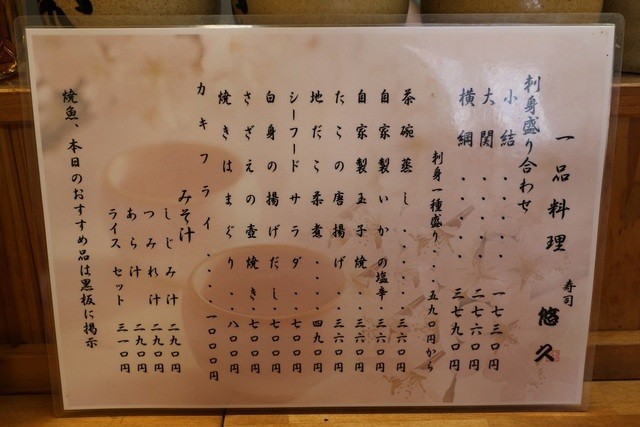 一品料理
寿司 悠久
刺身盛り合わせ
小結・・・・・一七三〇円
大関・・・・・二七六〇円
横綱・・・・・三七九〇円
刺身一種盛り・・・五九〇円から
茶碗蒸し・・・・・三六〇円
自家製いかの塩辛・三六〇円
自家製玉子焼・・・三六〇円
たこの唐揚げ・・・三六〇円
地だこ柔煮・・・・四九〇円
シーフードサラダ・・七〇〇円
白身の揚げだし・・七〇〇円
さざえの壺焼き・・七〇〇円
焼きはまぐり・・・八〇〇円
カキフライ・・・・一〇〇〇円
みそ汁
しじみ汁 二九〇円
つみれ汁 二九〇円
あら汁 二九〇円
ライスセット 三一〇円
焼魚、本日のおすすめ品は黒板に掲示